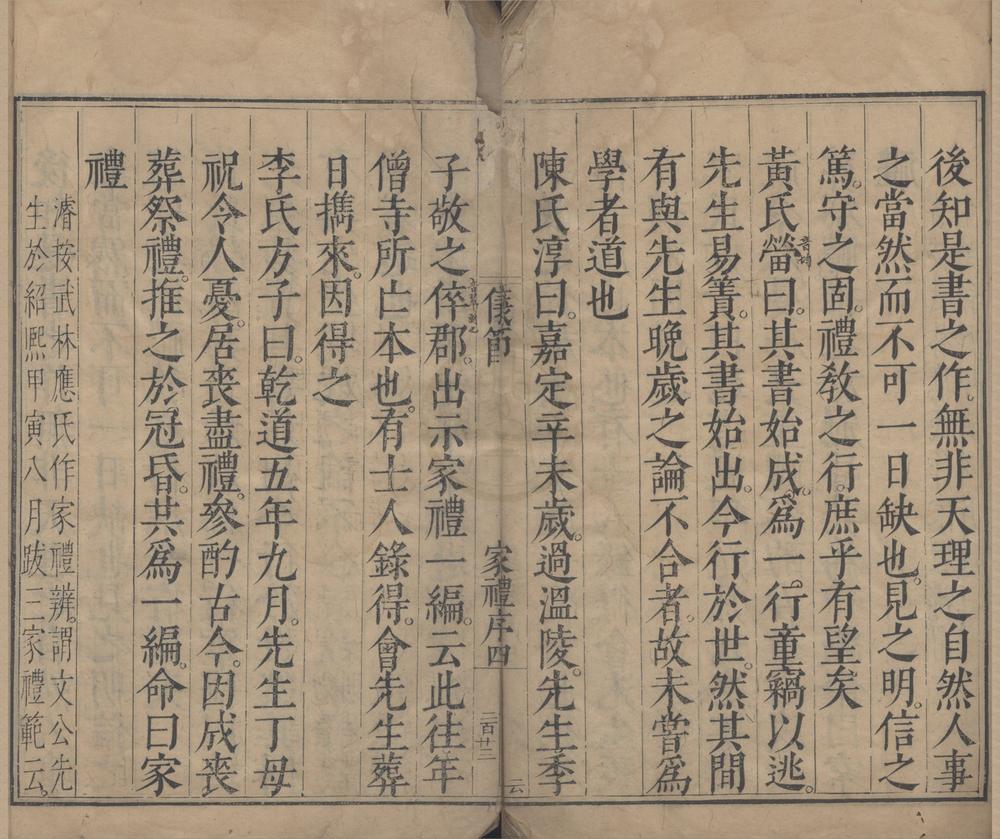 後知是書之作。無非天理之自然人事
之當然而不可一日缺也。見之明。信之
篤。守之固。禮教之行。庶乎有望矣
黃氏㽦曰。其書始成。爲一行童竊以逃。
先生易簀。其書始出。今行於世。然其間
有與先生晚歲之論不合者。故未嘗爲
學者道也
陳氏淳曰。嘉定辛未歲。過溫陵。先生季
儀節
家禮序四
二百廿二
云
子敬之倅郡。出示家禮一編。云此往年
僧寺所亡本也。有士人錄得。會先生葬
日擕來。因得之
李氏方子曰。乾道五年九月。先生丁母
祝令人憂。居喪盡禮。參酌古今。因成喪
葬祭禮。推之於冠昏。共爲一編。命曰家
禮
濬按武林應氏作家禮辨。謂文公先
生於紹熙甲寅八月跋三家禮範云。